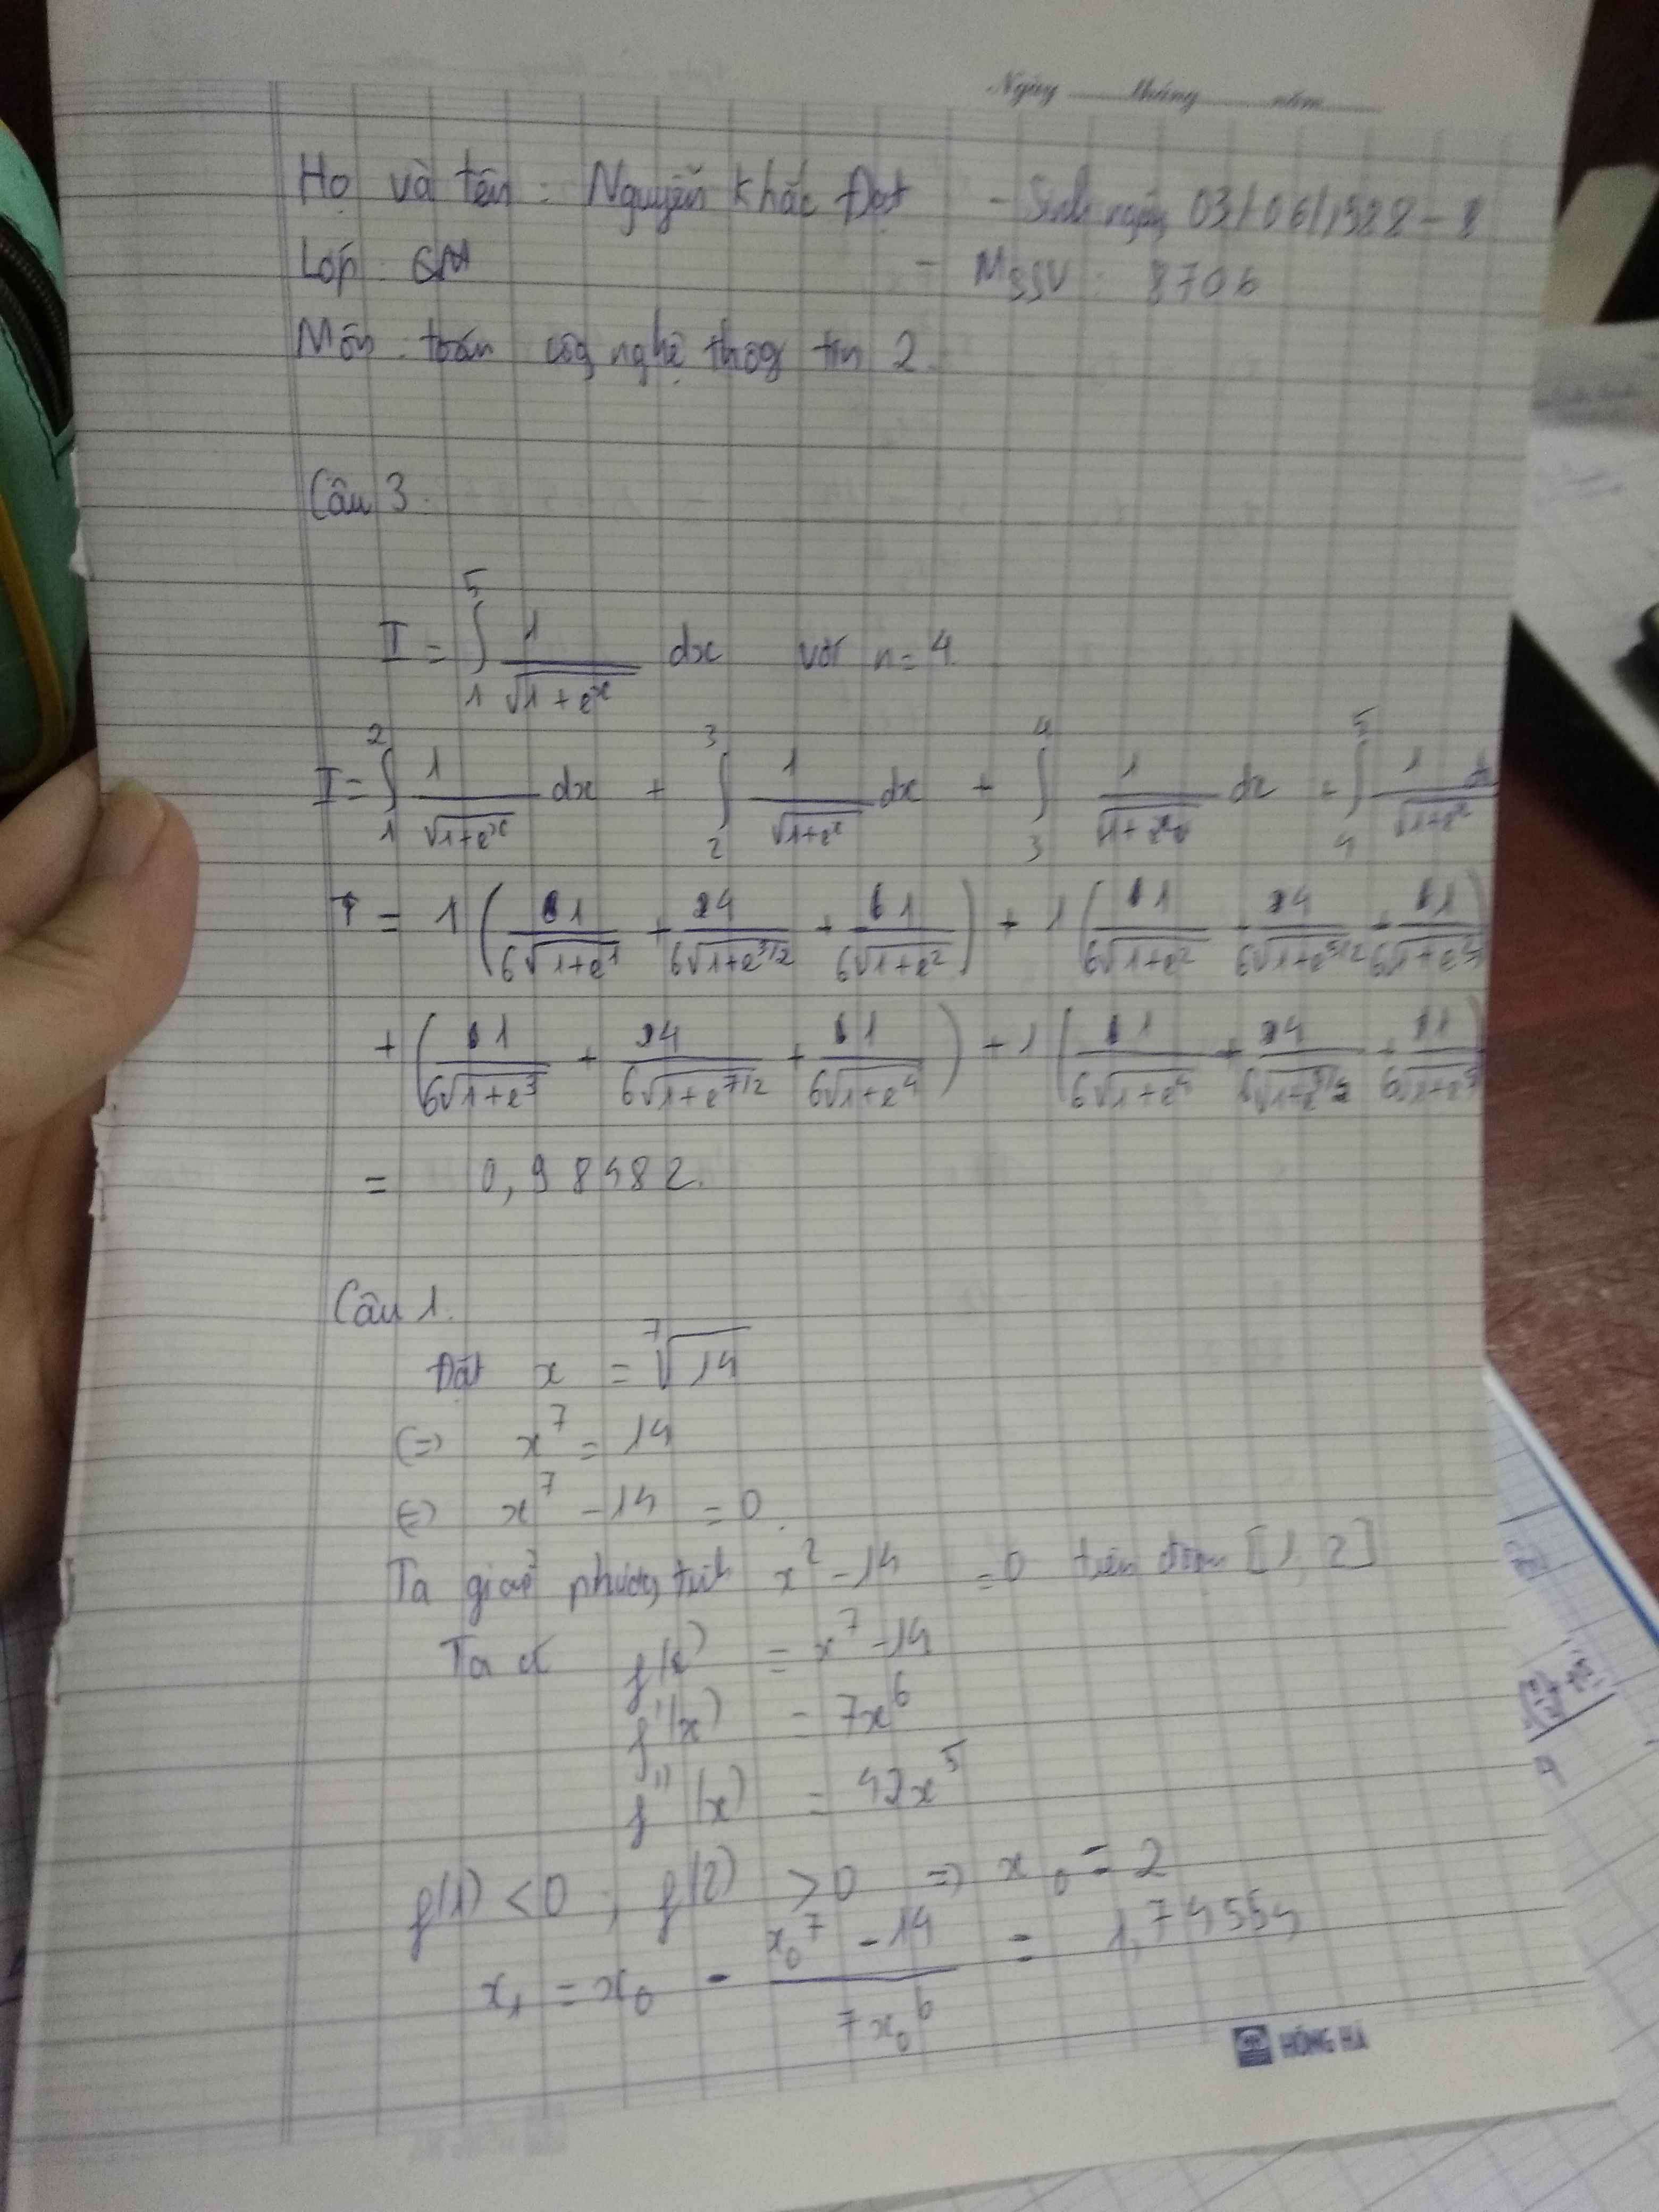 Ngày tháng năm
Họ và tên : Nguyễn Khắc Đạt - Sinh ngày 03/06/1988 - 8
Lớp : - MSSV : 8706
Môn : toán công nghệ thông tin 2.
Câu 3.
I = ∫₁⁵ 1/√(1+eˣ) dx với n = 4
I = ∫₁² 1/√(1+eˣ) dx + ∫₂³ 1/√(1+eˣ) dx + ∫₃⁴ 1/√(1+eˣ) dx + ∫₄⁵ 1/√(1+eˣ) dx
I = 1 ( 1/6√(1+e¹) + 4/6√(1+e^3/2) + 1/6√(1+e²) ) + 1 ( 1/6√(1+e²) + 4/6√(1+e^5/2) + 1/6√(1+e³) )
+ ( 1/6√(1+e³) + 4/6√(1+e^7/2) + 1/6√(1+e⁴) ) + 1 ( 1/6√(1+e⁴) + 4/6√(1+e^9/2) + 1/6√(1+e⁵) )
= 0,98482.
Câu 1.
Đặt x = ⁷√14
(=) x⁷ = 14
(=) x⁷ - 14 = 0.
Ta giải phương trình x² - 14 = 0 trên đoạn [1, 2]
Ta có f(x) = x⁷ - 14
f'(x) = 7x⁶
f''(x) = 42x⁵
f(1) < 0 ; f(2) > 0 => x₀ = 2
x₁ = x₀ - (x₀⁷ - 14)/7x₀⁶ = 1,74554
HỒNG HÀ